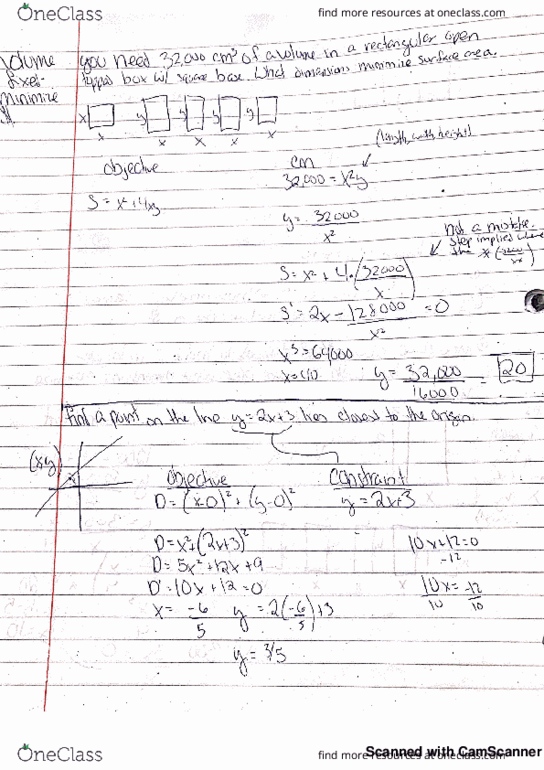 OneClass
find more resources at oneclass.com
Volume
fixed-
minimize
you need 32000 cm³ of a volume in a rectangular open
topped box w/ square base. What dimensions minimize surface area.
x y y y y
x x x x x
(length, width, height)
objective
cm
32,000 = x²y
S = x² + 4xy
y = 32000
x²
not a mistake.
step implied where
the
S = x² + 4·(32000/x)
S' = 2x - 128000/x² = 0
x³ = 64000
x = 40
y = 32,000/16000 = 20
Find a point on the line y = 2x+3 lies closest to the origin.
(x,y)
objective
constraint
D = (x-0)² + (y-0)²
y = 2x+3
D = x² + (2x+3)²
10x+12=0
-12
D = 5x² + 12x + 9
D' = 10x + 12 = 0
10x = -12
10 10
x = -6/5
y = 2(-6/5)+3
y = 3/5
OneClass
find more resources at oneclass.com
Scanned with CamScanner